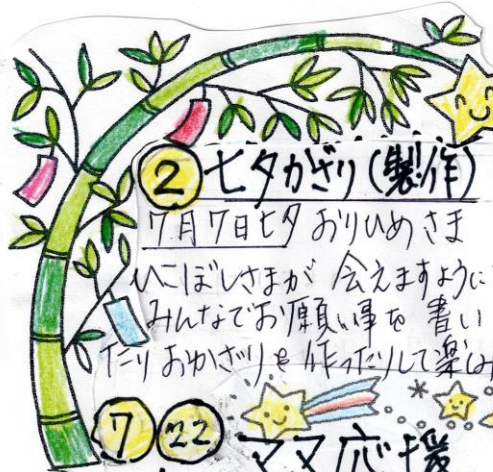 ② 七夕かざり(製作)
7月7日七夕 おりひめさま
ひこぼしさまが 会えますように
みんなでお願い事を 書い
たり おかざりを 作ったりして楽しみ
⑦ ㉒ ママ応援